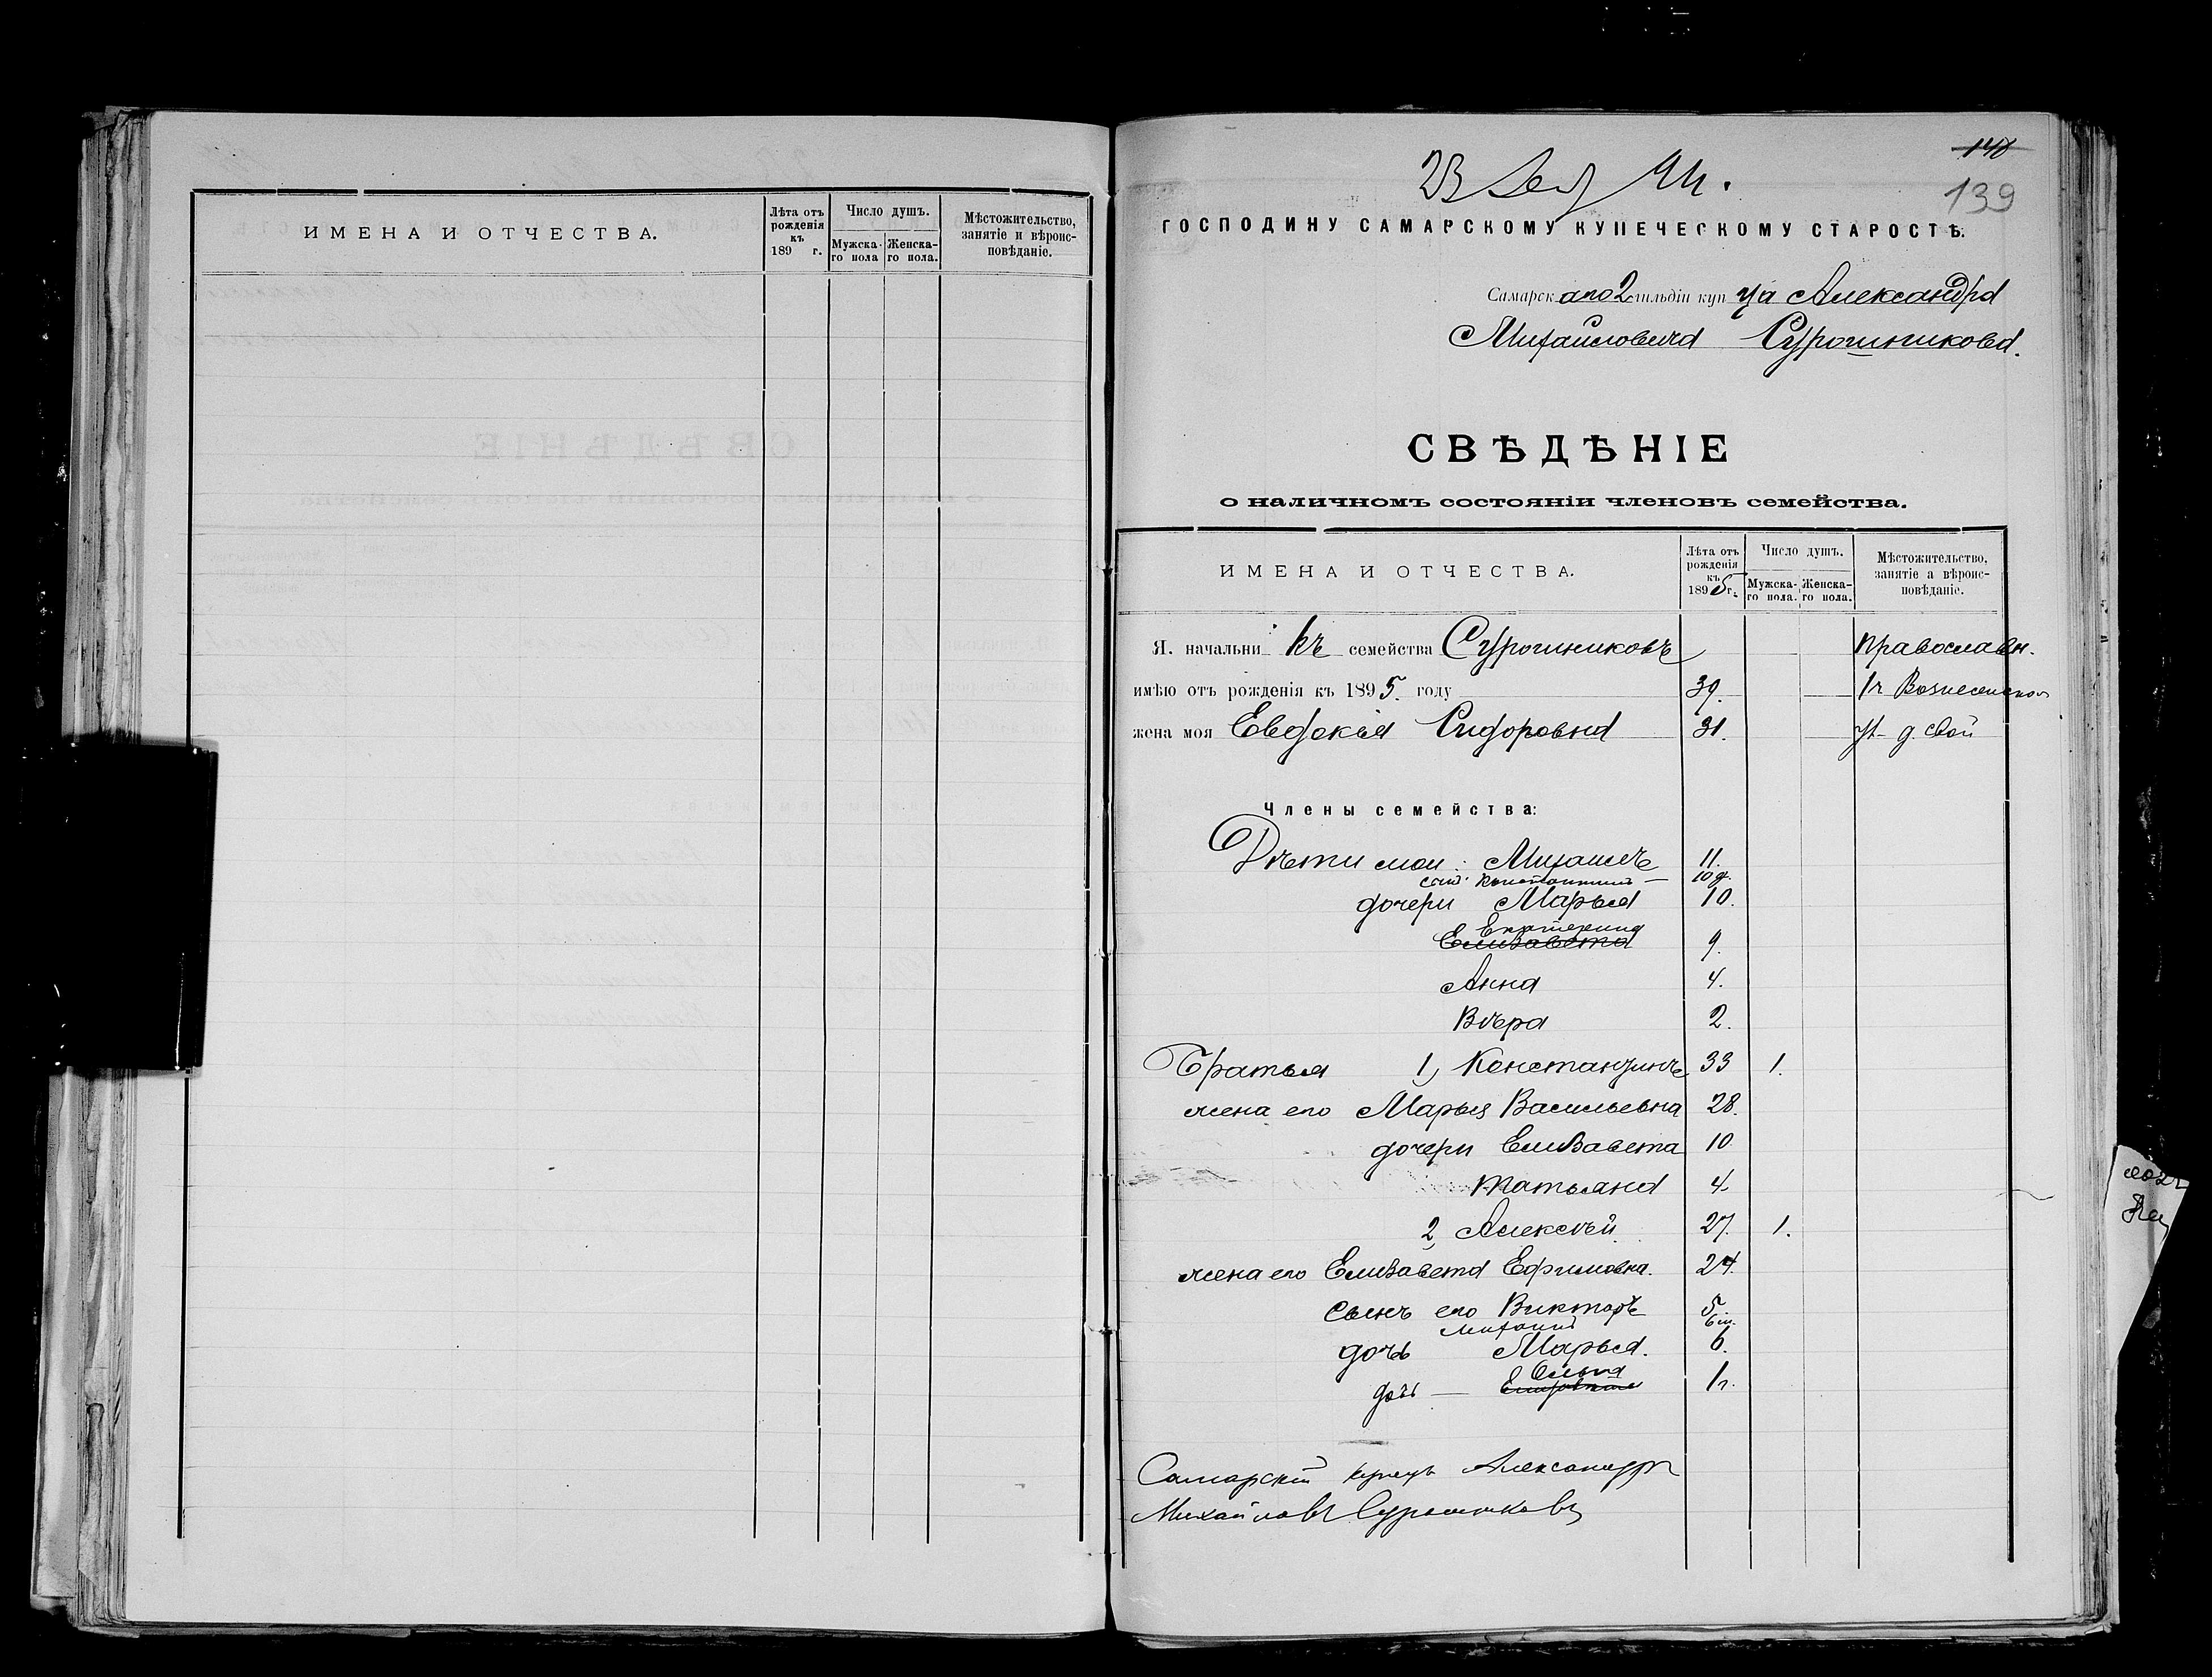 ИМЕНА И ОТЧЕСТВА.
Лѣта отъ рожденія къ 189 г.
Число душъ.
Мужска-го пола
Женска-го пола.
Мѣстожительство, занятіе и вѣроис-повѣданіе.
140
139
23 94.
ГОСПОДИНУ САМАРСКОМУ КУПЕЧЕСКОМУ СТАРОСТѢ.
Самарск аго 2 гильдіи куп ца Александра
Михайловича Сурошникова.
СВѢДѢНІЕ
о наличномъ состояніи членовъ семейства.
ИМЕНА И ОТЧЕСТВА.
Лѣта отъ рожденія къ 1895 г.
Число душъ.
Мужска-го пола.
Женска-го пола.
Мѣстожительство, занятіе а вѣроис-повѣданіе.
Я. начальни къ семейства Сурошниковъ Православн.
имѣю отъ рожденія къ 1895. году 39. 1ч Вознесенской
жена моя Евдокія Сидоровна 31. ул. д. свой
Члены семейства:
Дѣти мои: Михаилъ 11.
сынъ Константинъ — 10 д.
дочери Марья 10.
Екатерина
Елизавета 9.
Анна 4.
Вѣра 2.
Братья 1, Константинъ 33 1.
жена его Марья Васильевна 28.
дочери Елизавета 10
Татьяна 4.
2, Алексѣй 27. 1.
жена его Елизавета Ефимовна. 24.
сынъ его Викторъ 5
Михаилъ 6 м.
дочь Марья. 6.
Ольга
дочь — 1 г.
Самарскій купецъ Александръ
Михайловъ Сурошниковъ